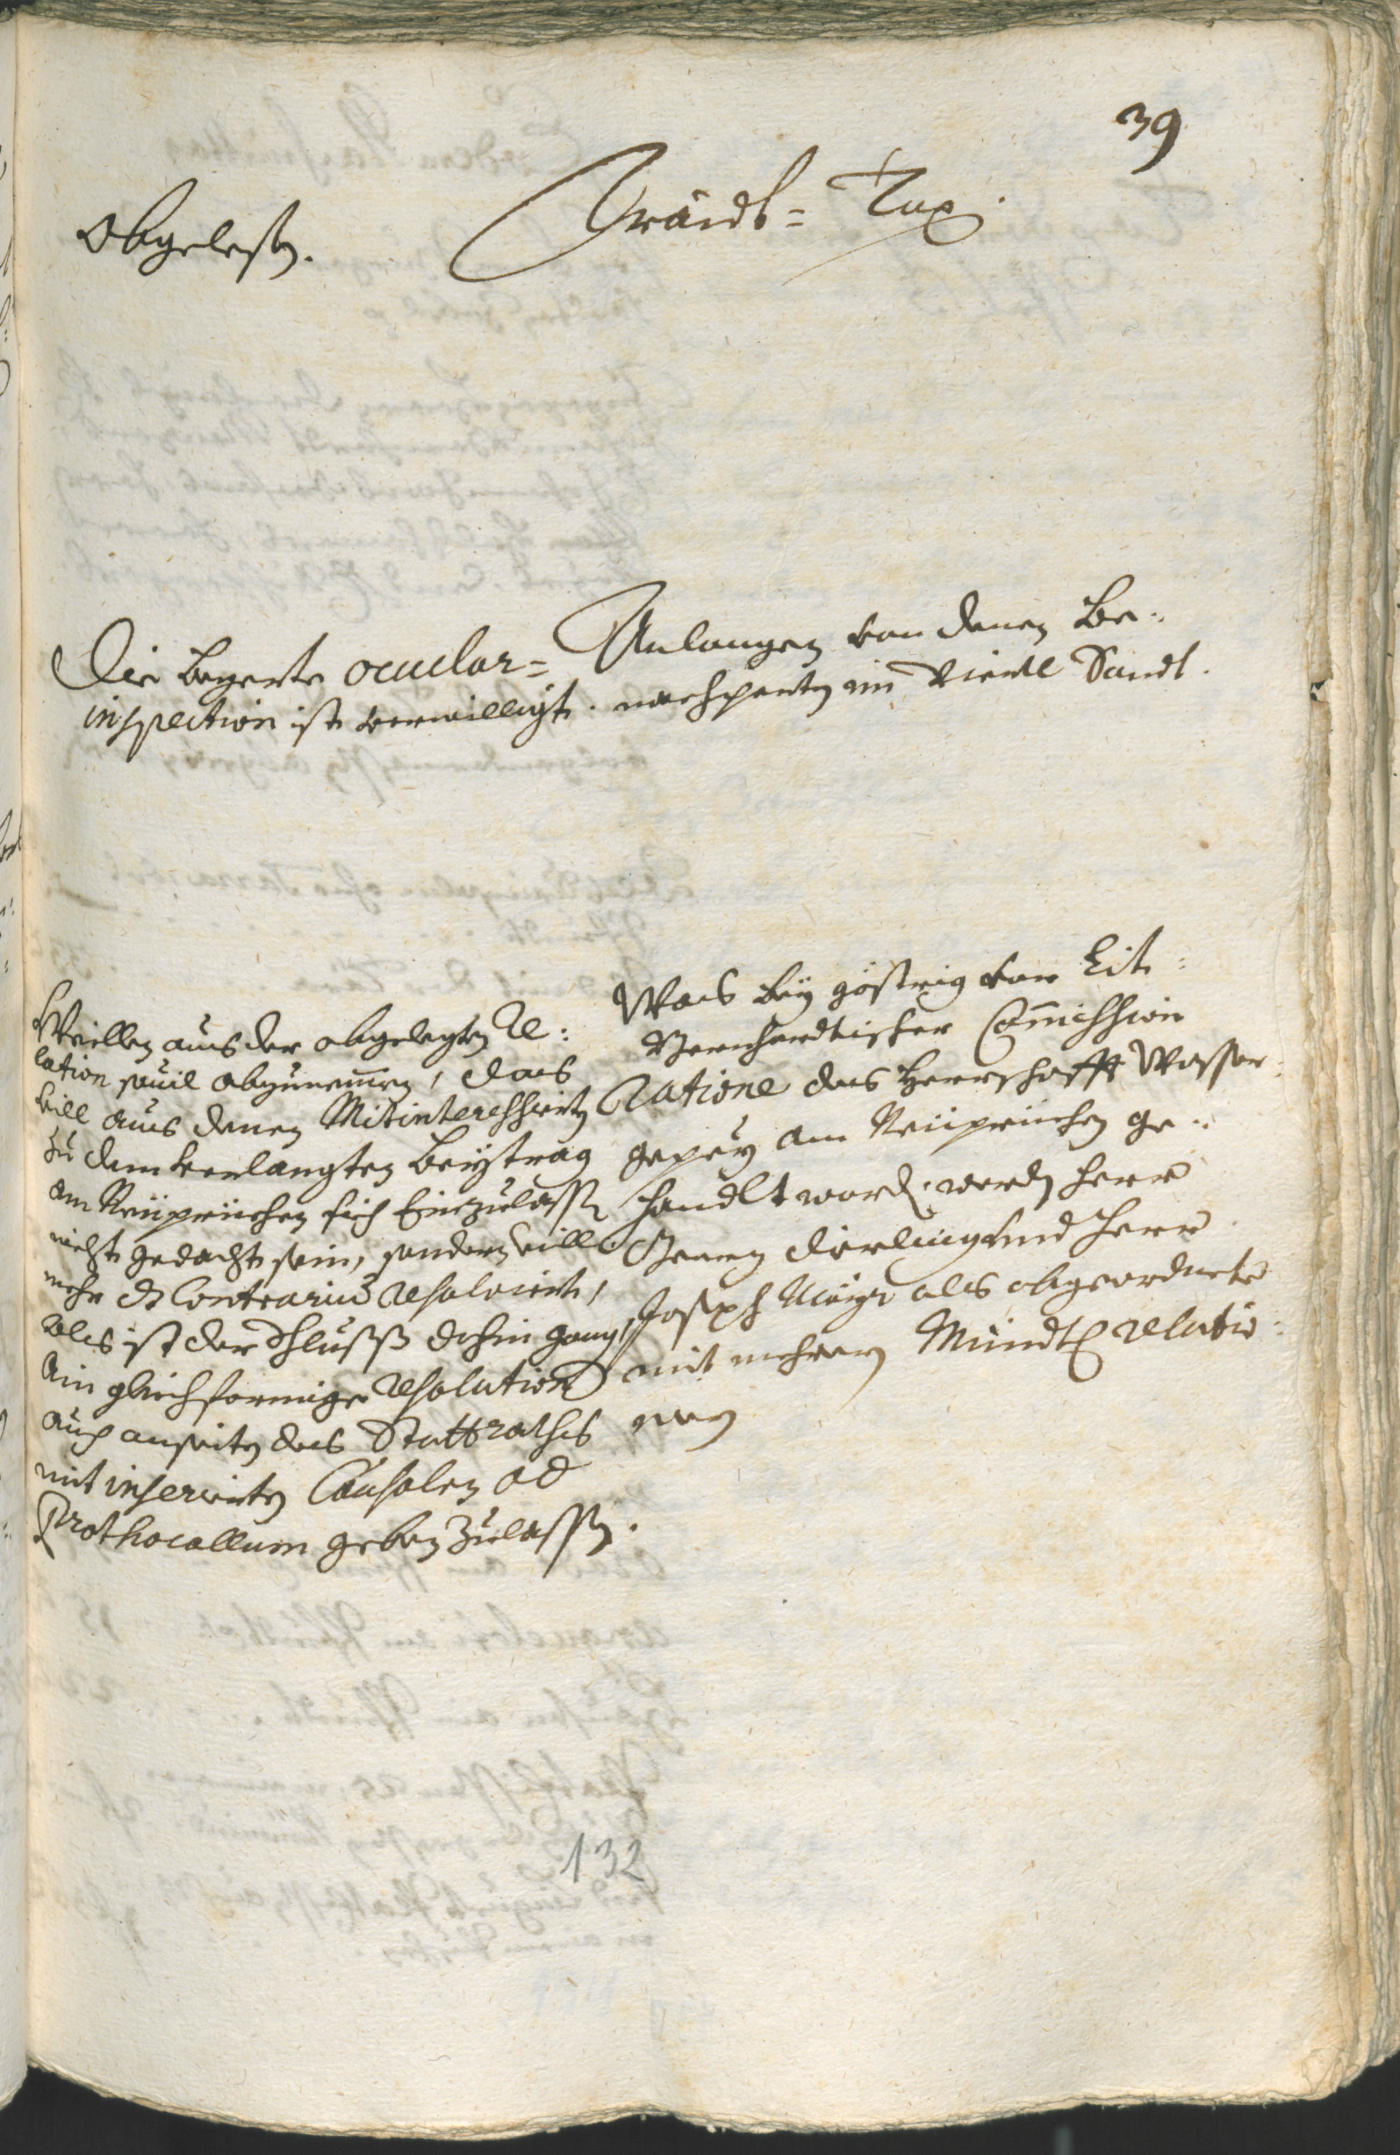 39
Abgelesen.
Träidt= Tax.
Die begerte ocular=
inspection ist verwilligt.
Anlangen von denen Be:
nachperten im Viertl Sandt.
Weillen aus der abgelegten Re:
lation souil abzunemmen, das
vill aus denen Mitinteressierten
zu dem verlangten Beytrag
am Neüprüchen sich Einzulassen
nicht gedacht sein, sondern vill
mehr ds Contrarium resolviert,
Als ist der Schluss dahin gang,
Ain gleichformige resolution
auch anseiten des Stattraths
mit inserierten Causalen ad
Prothocollum geben zulassen.
Was bey gösstrig von Tit:
Bernhardtischer Commission
Ratione des Herrschafft Wasser:
gepey am Neüprüchen ge:
handlt worden, werden Herr
Georg Dierling und Herr
Joseph Mayr als abgeordnete
mit mehrern Mündtl relatio:
nern
132